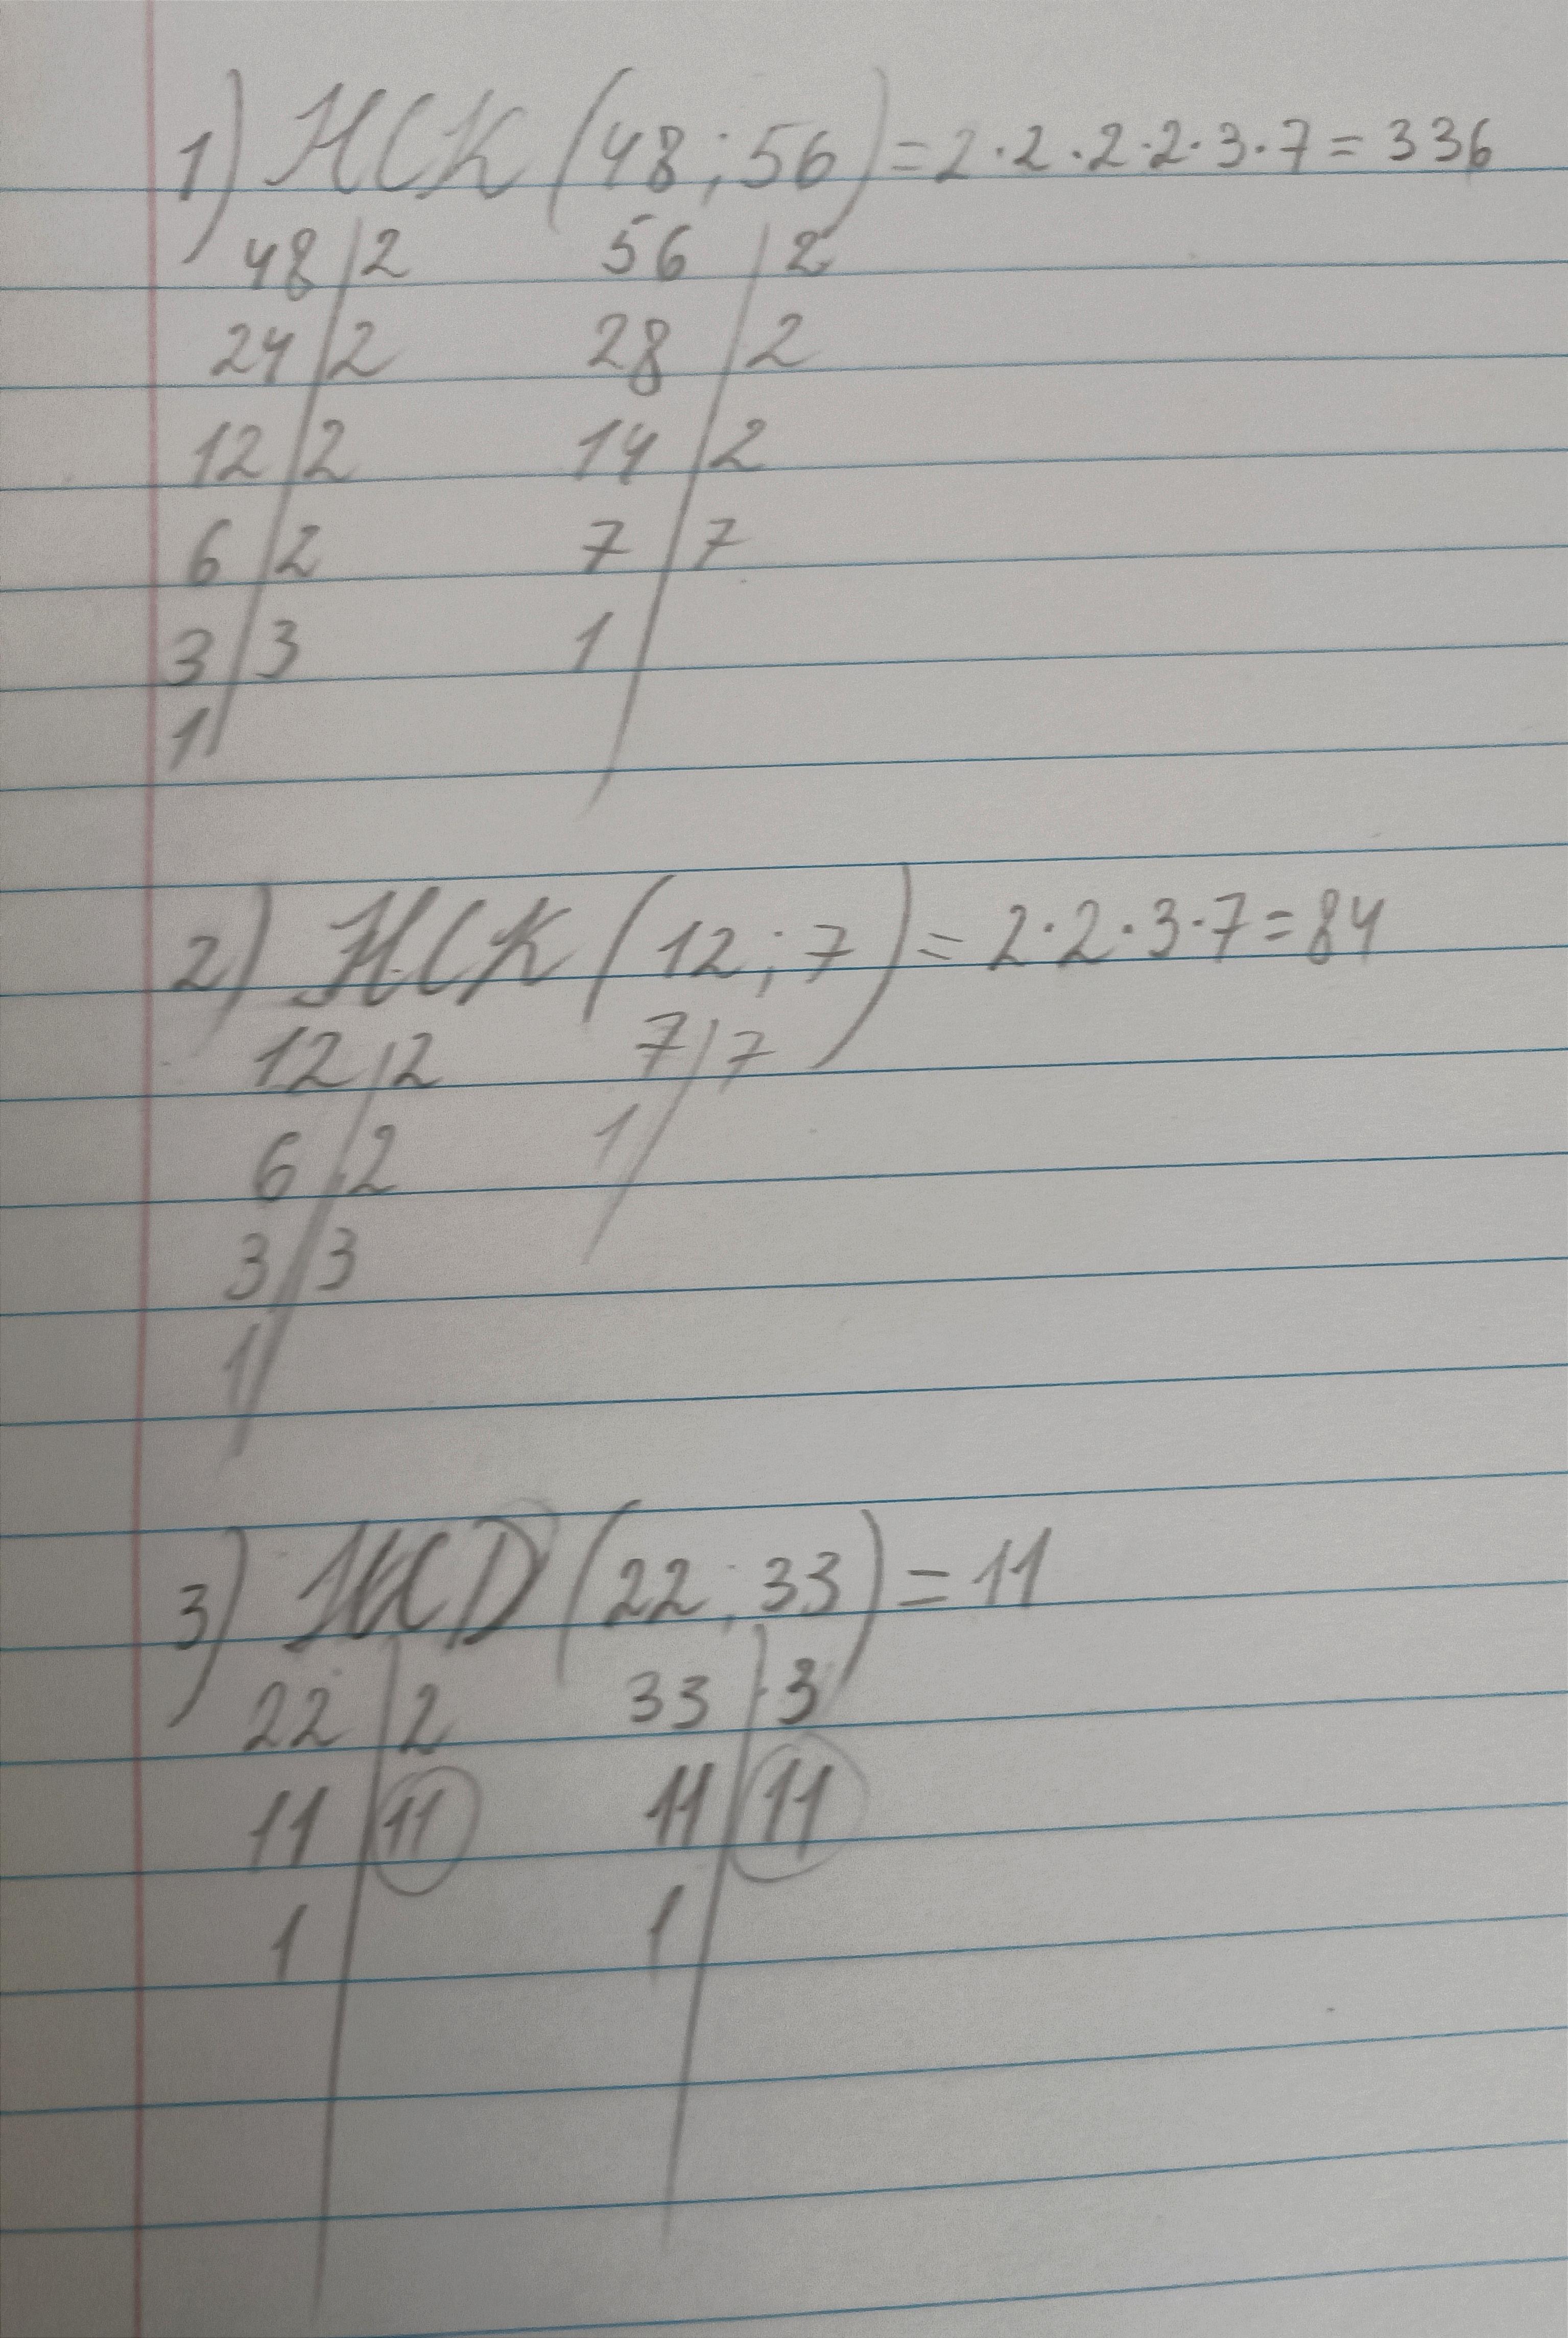 1) НСК (48; 56) = 2·2·2·2·3·7 = 336
48 | 2 56 | 2
24 | 2 28 | 2
12 | 2 14 | 2
6 | 2 7 | 7
3 | 3 1 |
1 |
2) НСК (12; 7) = 2·2·3·7 = 84
12 | 2 7 | 7
6 | 2 1 |
3 | 3
1 |
3) НСD (22; 33) = 11
22 | 2 33 | 3
11 | 11 11 | 11
1 | 1 |